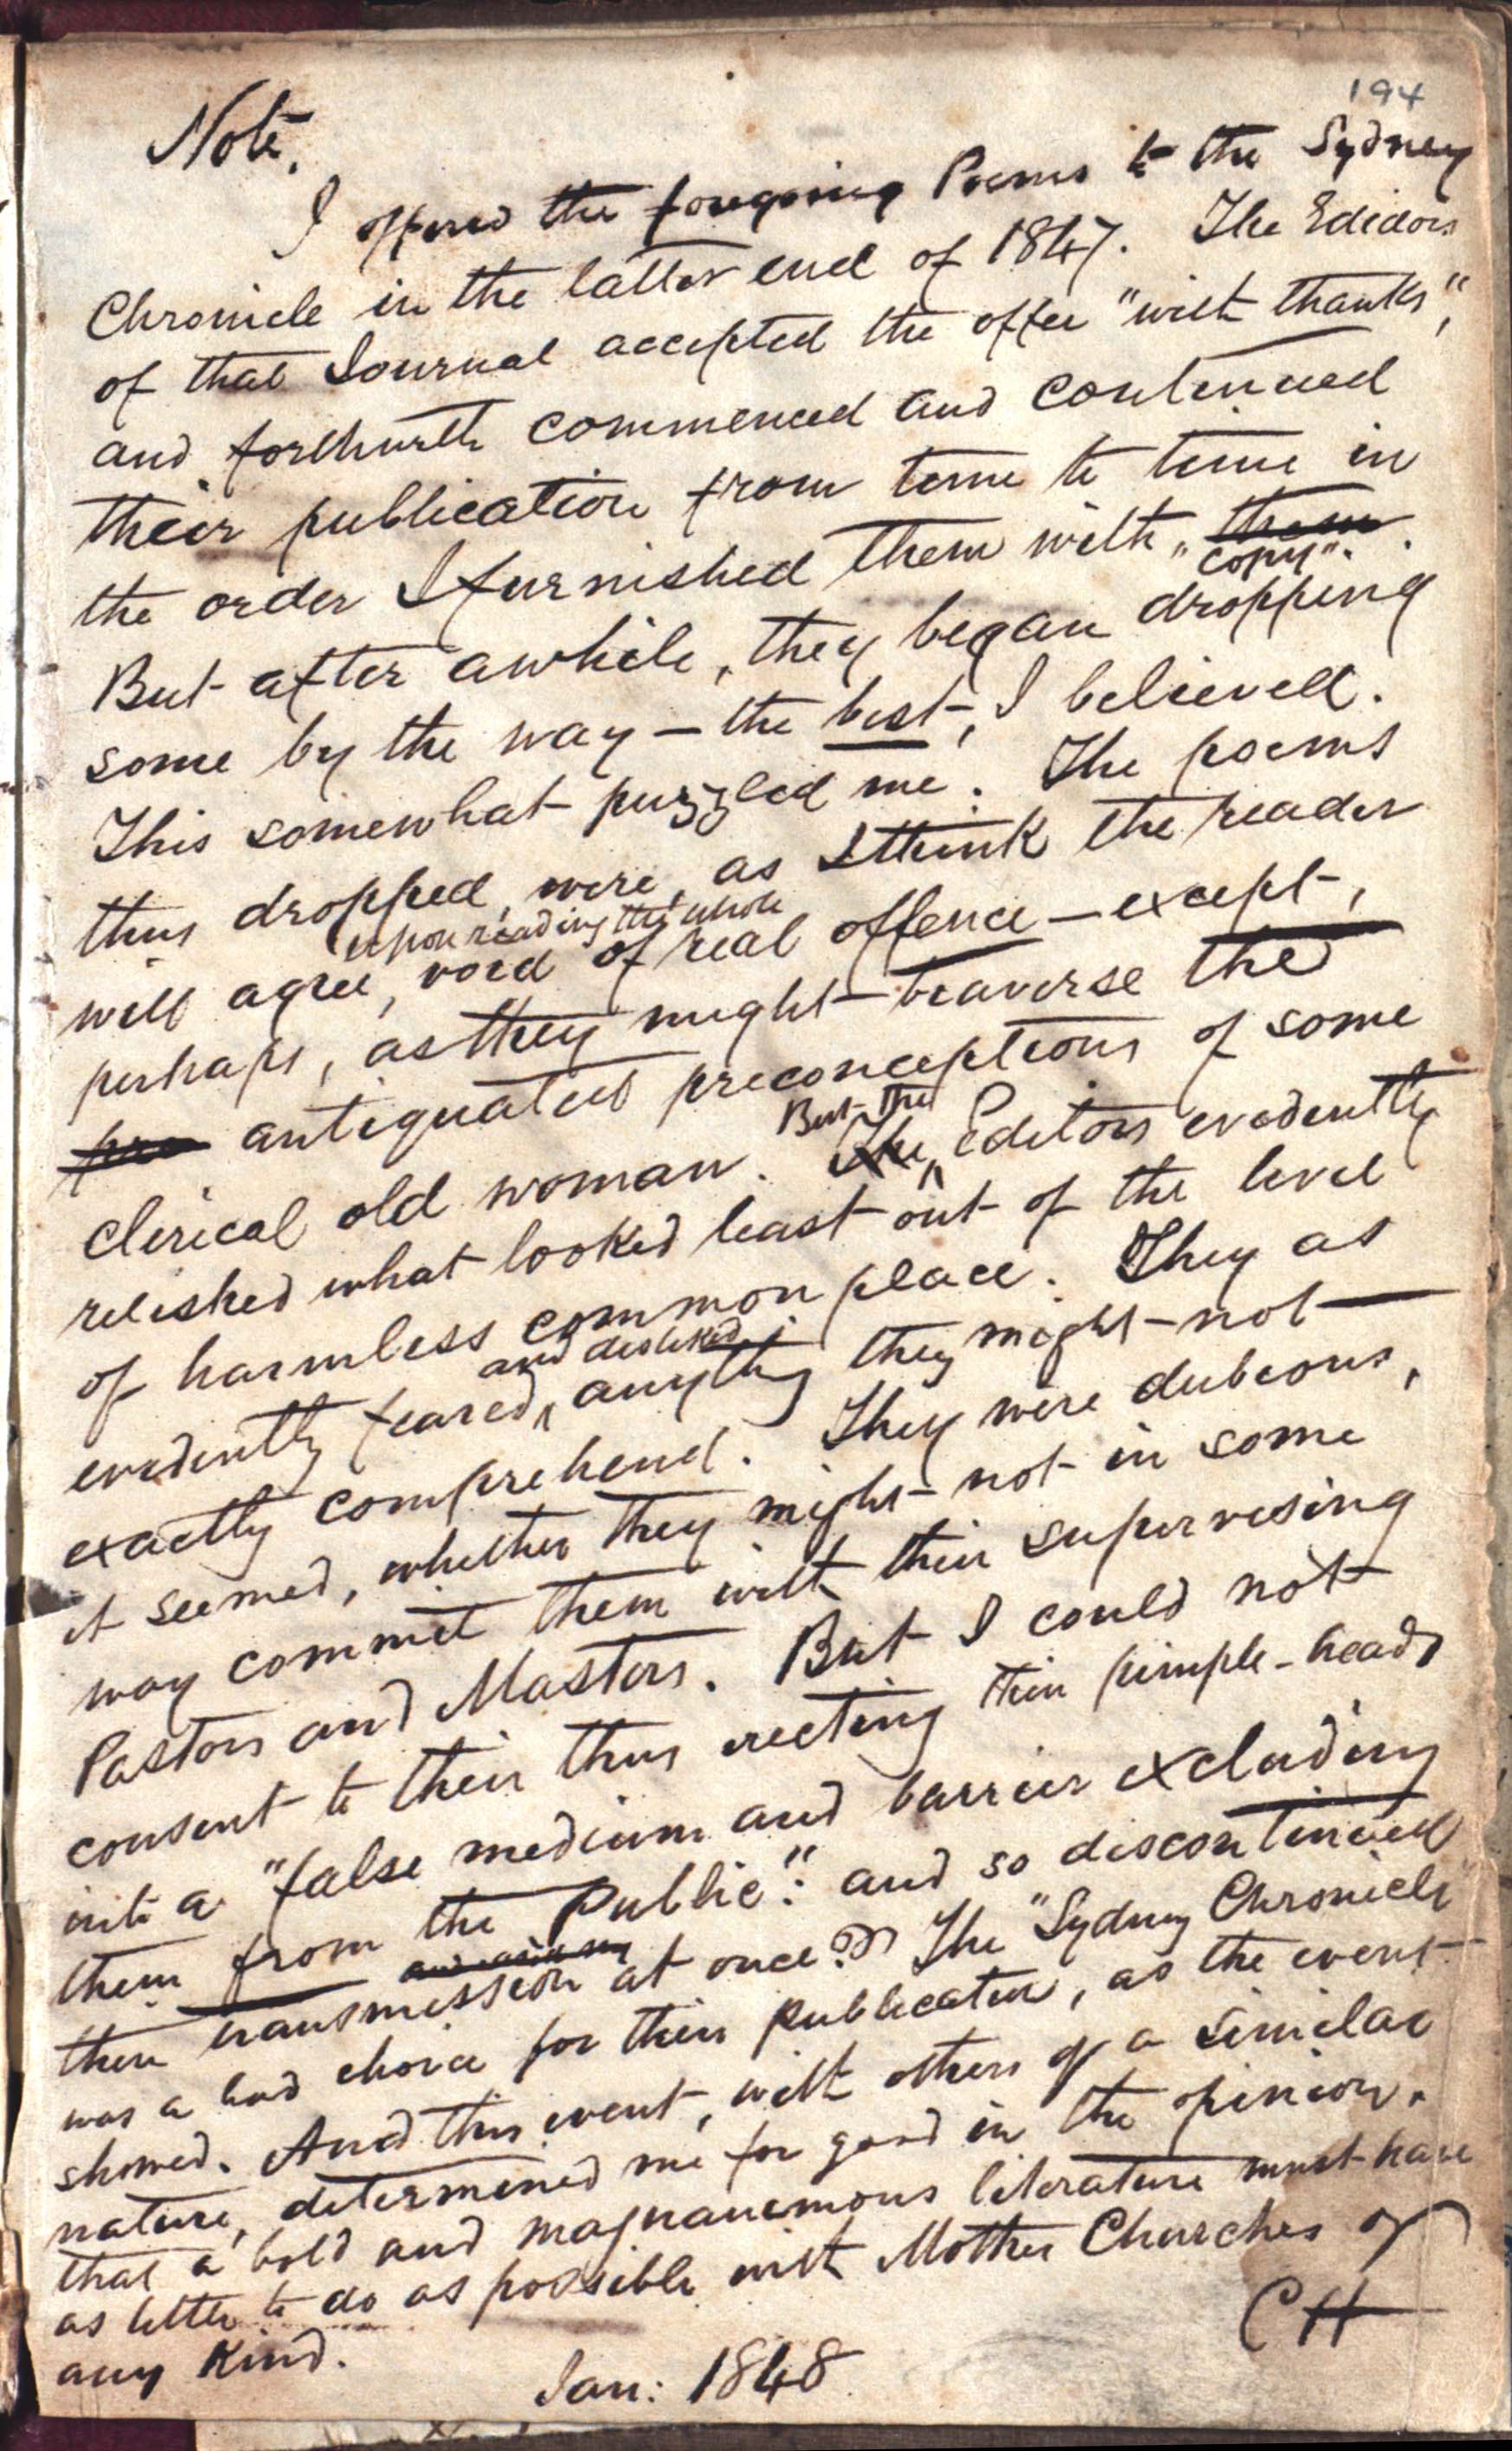 194
Note.
I offered the foregoing Poems to the Sydney
Chronicle in the latter end of 1847. The Edidors
of that Journal accepted the offer "with thanks",
and forthwith commenced and continued
their publication from time to time in
the order I furnished them with them
"copy".
But after awhile, they began dropping
some by the way — the best, I believed.
This somewhat puzzled me. The poems
thus dropped, were, as I think the reader
upon reading the whole
will agree, void of real offence — except,
perhaps, as they might traverse the
pre antiquated preconceptions of some
But the
clerical old woman. The Editors evidently
relished what looked least out of the level
of harmless common place. They as
and disliked
evidently feared, anything they might not
exactly comprehend. They were dubious,
it seemed, whether they might not in some
way commit them with their supervising
Pastors and Masters. But I could not
consent to their thus erecting their pimple-heads
into a "false medium and barrier excluding
them from the Public": and so discontinued
their transmission at once. The "Sydney Chronicle"
was a bad choice for their publication, as the event
showed. And this event, with others of a similar
nature, determined me for good in the opinion,
that a bold and magnanimous literature must have
as little to do as possible with Mother Churches of
any kind.
CH
Jan: 1848